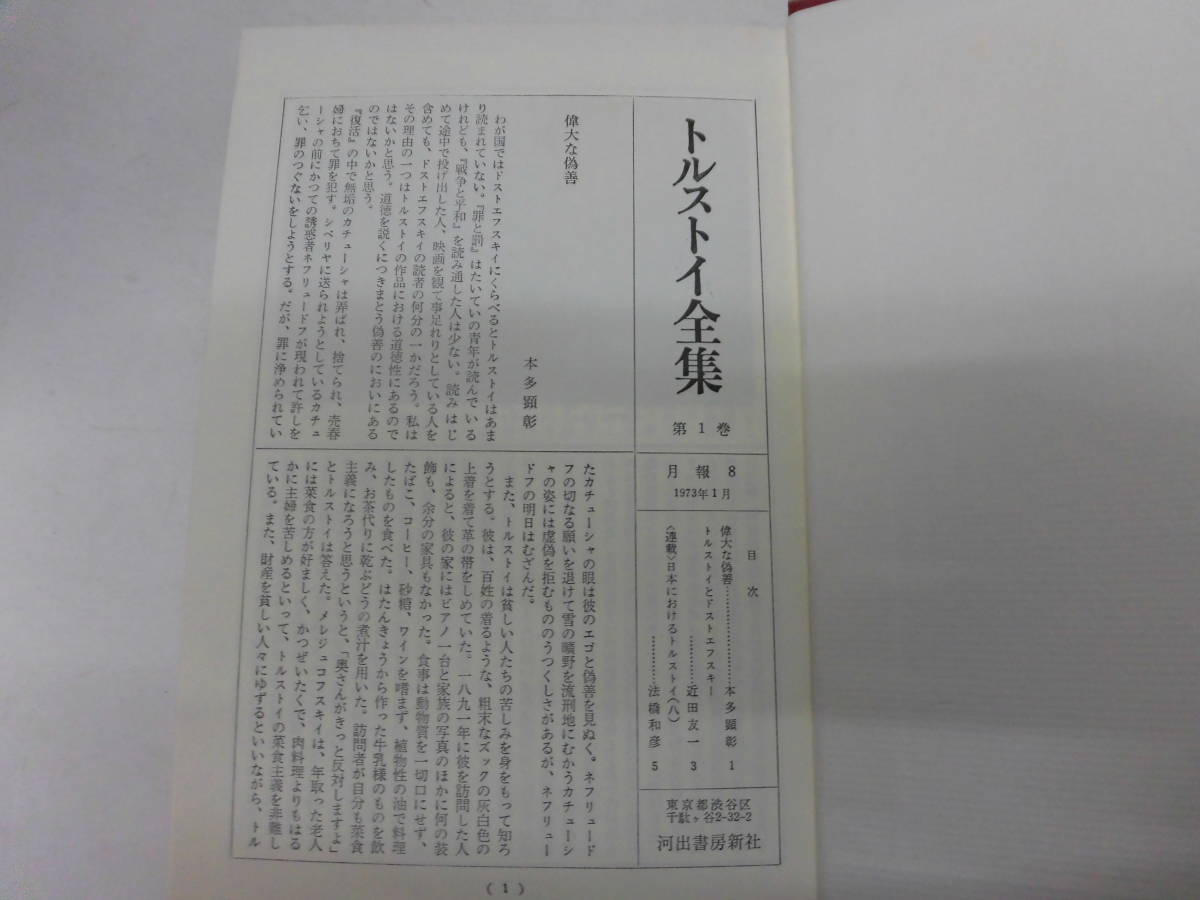 トルストイ全集
第1巻
月報8
1973年1月
目次
偉大な偽善…………………本多顕彰 1
トルストイとドストエフスキー
…………近田友一 3
〈連載〉日本におけるトルストイ(八)
…………法橋和彦 5
東京都渋谷区
千駄ヶ谷2-32-2
河出書房新社
偉大な偽善
本多顕彰
わが国ではドストエフスキイにくらべるとトルストイはあま
り読まれていない。『罪と罰』はたいていの青年が読んでいる
けれども、『戦争と平和』を読み通した人は少ない。読みはじ
めて途中で投げ出した人、映画を観て事足れりとしている人を
含めても、ドストエフスキイの読者の何分の一かだろう。私は
その理由の一つはトルストイの作品における道徳性にあるので
はないかと思う。道徳を説くにつきまとう偽善のにおいにある
のではないかと思う。
『復活』の中で無垢のカチューシャは弄ばれ、捨てられ、売春
婦におちて罪を犯す。シベリヤに送られようとしているカチュ
ーシャの前にかつての誘惑者ネフリュードフが現われて許しを
乞い、罪のつぐないをしようとする。だが、罪に浄められてい
たカチューシャの眼は彼のエゴと偽善を見ぬく。ネフリュード
フの切なる願いを退けて雪の曠野を流刑地にむかうカチューシ
ャの姿には虚偽を拒むもののうつくしさがあるが、ネフリュー
ドフの明日はむざんだ。
また、トルストイは貧しい人たちの苦しみを身をもって知ろ
うとする。彼は、百姓の着るような、粗末なズックの灰白色の
上着を着て革の帯をしめていた。一八九一年に彼を訪問した人
によると、彼の家にはピアノ一台と家族の写真のほかに何の装
飾も、余分の家具もなかった。食事は動物質を一切口にせず、
たばこ、コーヒー、砂糖、ワインを嗜まず、植物性の油で料理
したものを食べた。はたんきょうから作った牛乳様のものを飲
み、お茶代りに乾ぶどうの煮汁を用いた。訪問者が自分も菜食
主義になろうと思うというと、「奥さんがきっと反対しますよ」
とトルストイは答えた。メレジュコフスキイは、年取った老人
には菜食の方が好ましく、かつぜいたくで、肉料理よりもはる
かに主婦を苦しめるといって、トルストイの菜食主義を非難し
ている。また、財産を貧しい人々にゆずるといいながら、トル
(1)